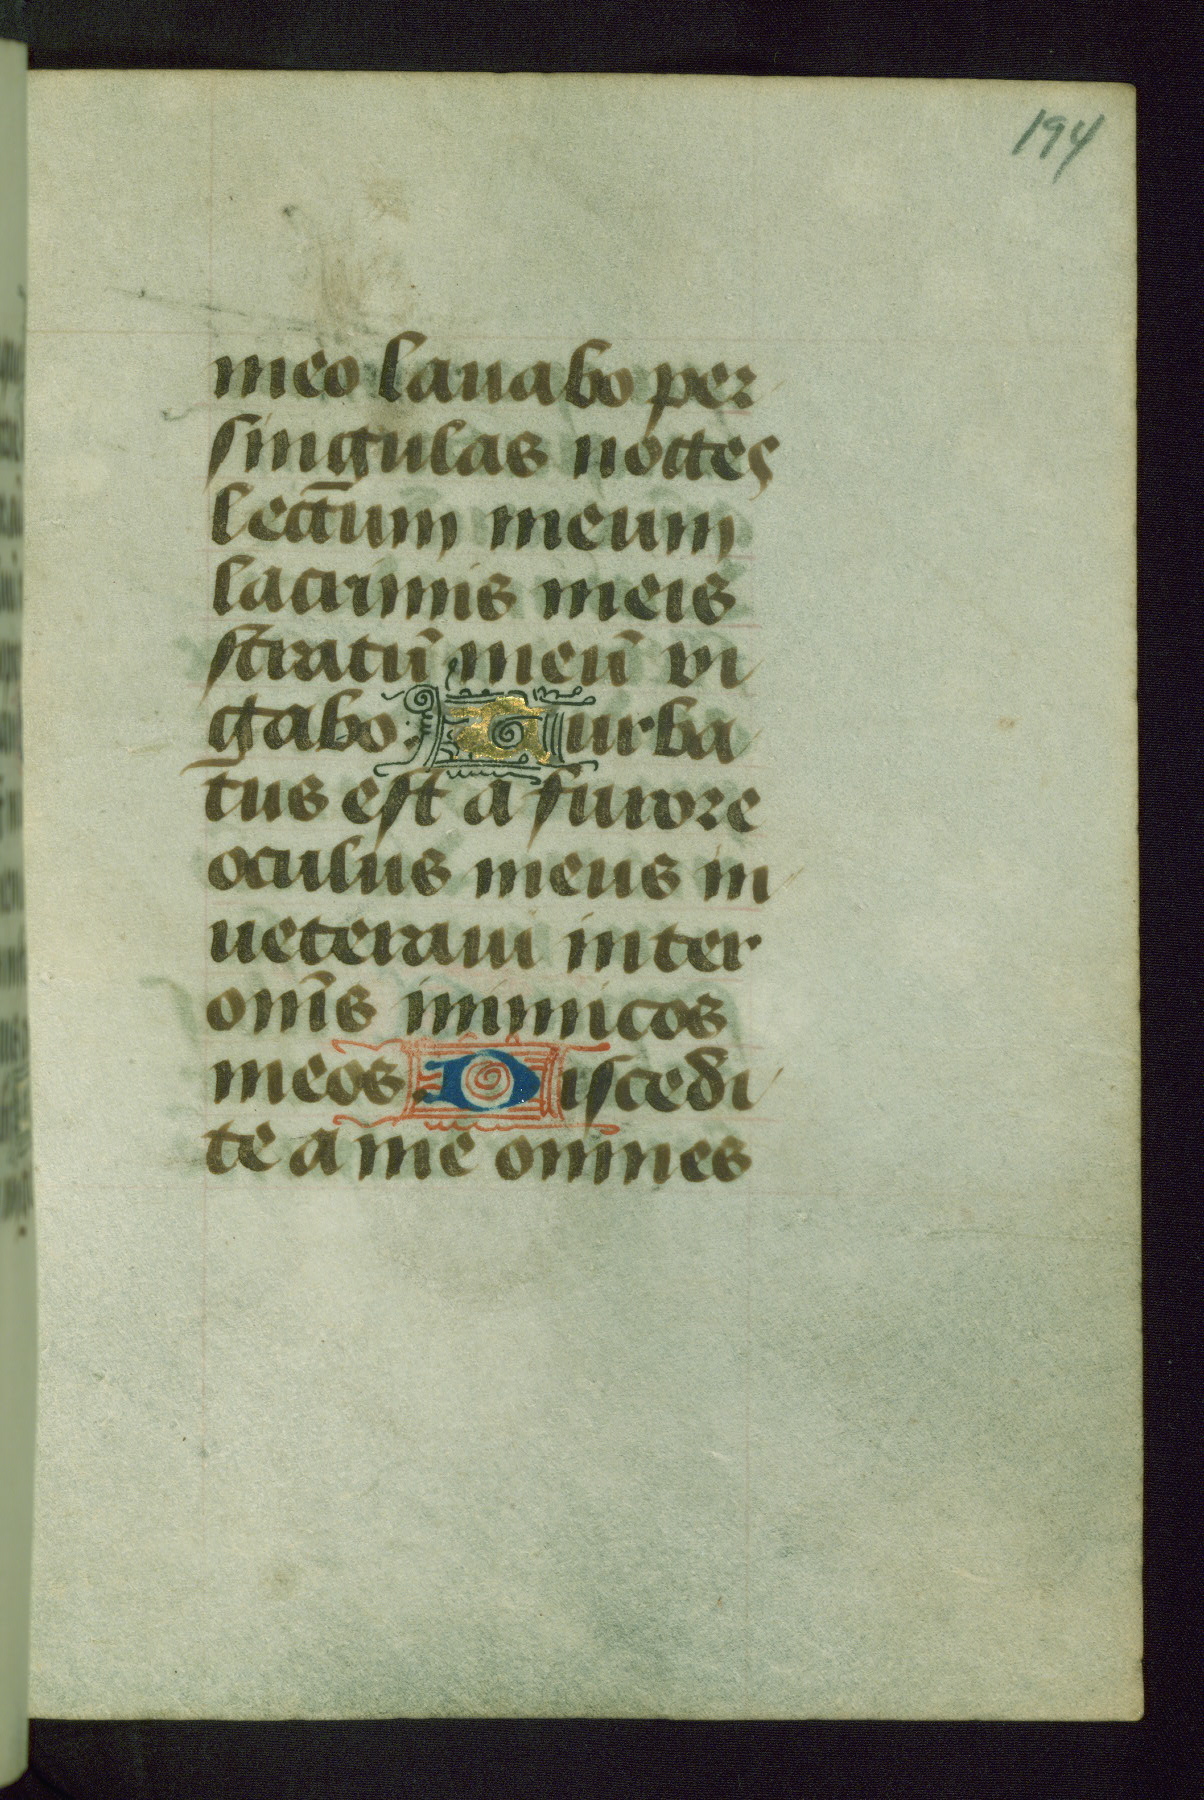 194
meo lauabo per
singulas noctes
lectum meum
lacrimis meis
stratū meū ri
gabo. Turba
tus est a furore
oculus meus in
ueteraui inter
om̄s inimicos
meos. Discedi
te a me omnes